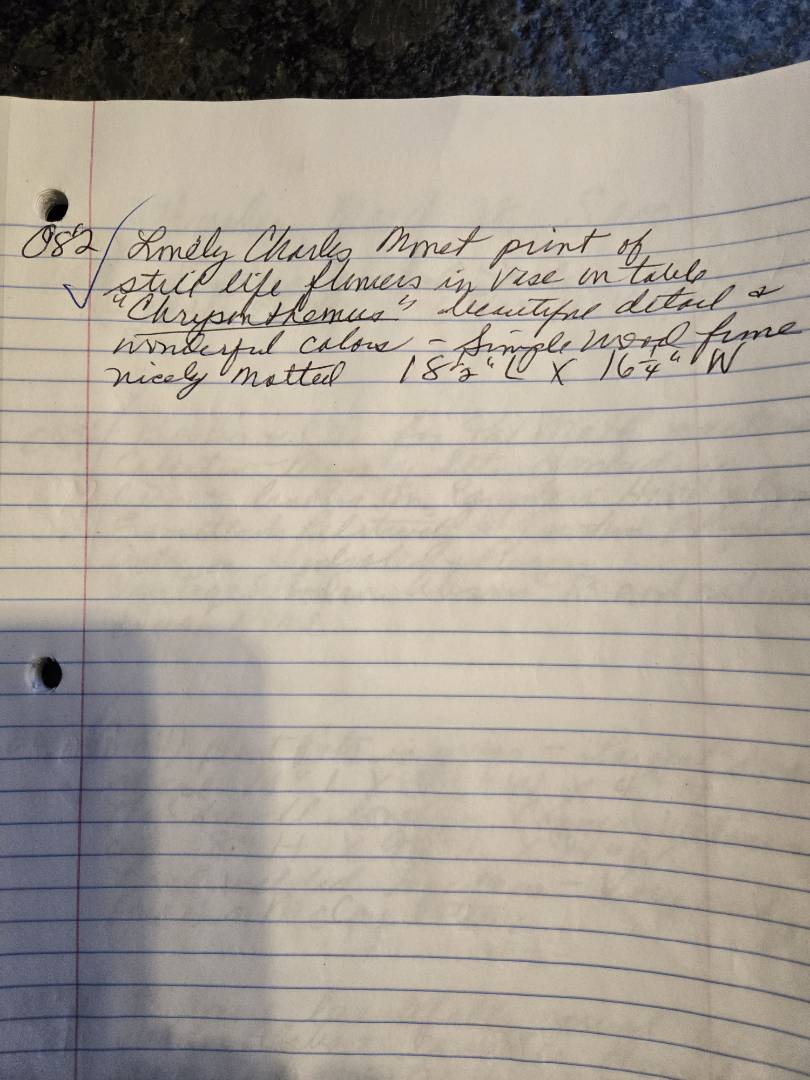 082 Lovely Charles Monet print of
still life flowers in vase on table
"Chrysanthemus" beautiful detail &
wonderful colors - Simple wood frame
nicely matted 18 1/2" L X 16 1/4" W